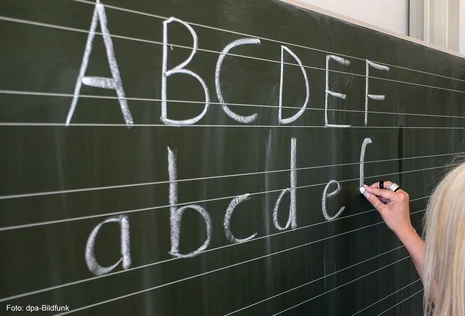 A B C D E F
a b c d e f
Foto: dpa-Bildfunk